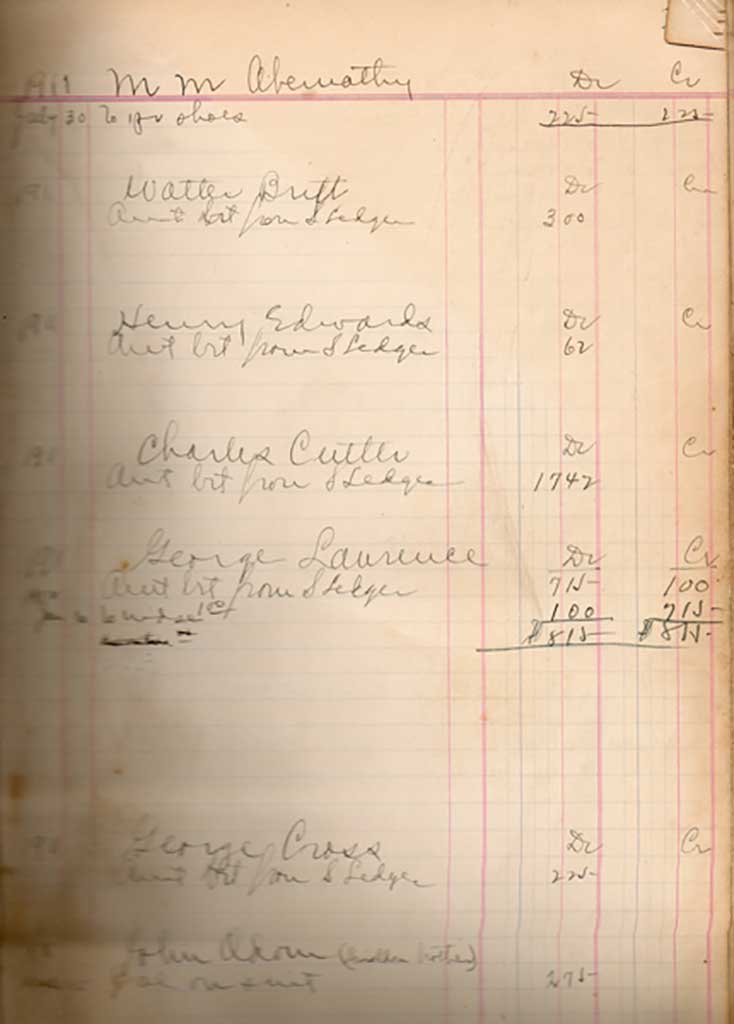 1911 M M Abernathy Dr Cr
30 To 1 pr shoes 225 225
Dr Cr
Amt brt from S Ledger 300
Henry Edwards Dr Cr
Amt brt from S Ledger 62
Charles Cutler Dr Cr
Amt brt from S Ledger 1742
George Lawrence Dr Cr
Amt brt from S Ledger 715 100
100 715
$815 $815
George Cross Dr Cr
Amt brt from S Ledger 225
John Odom
on suit 275